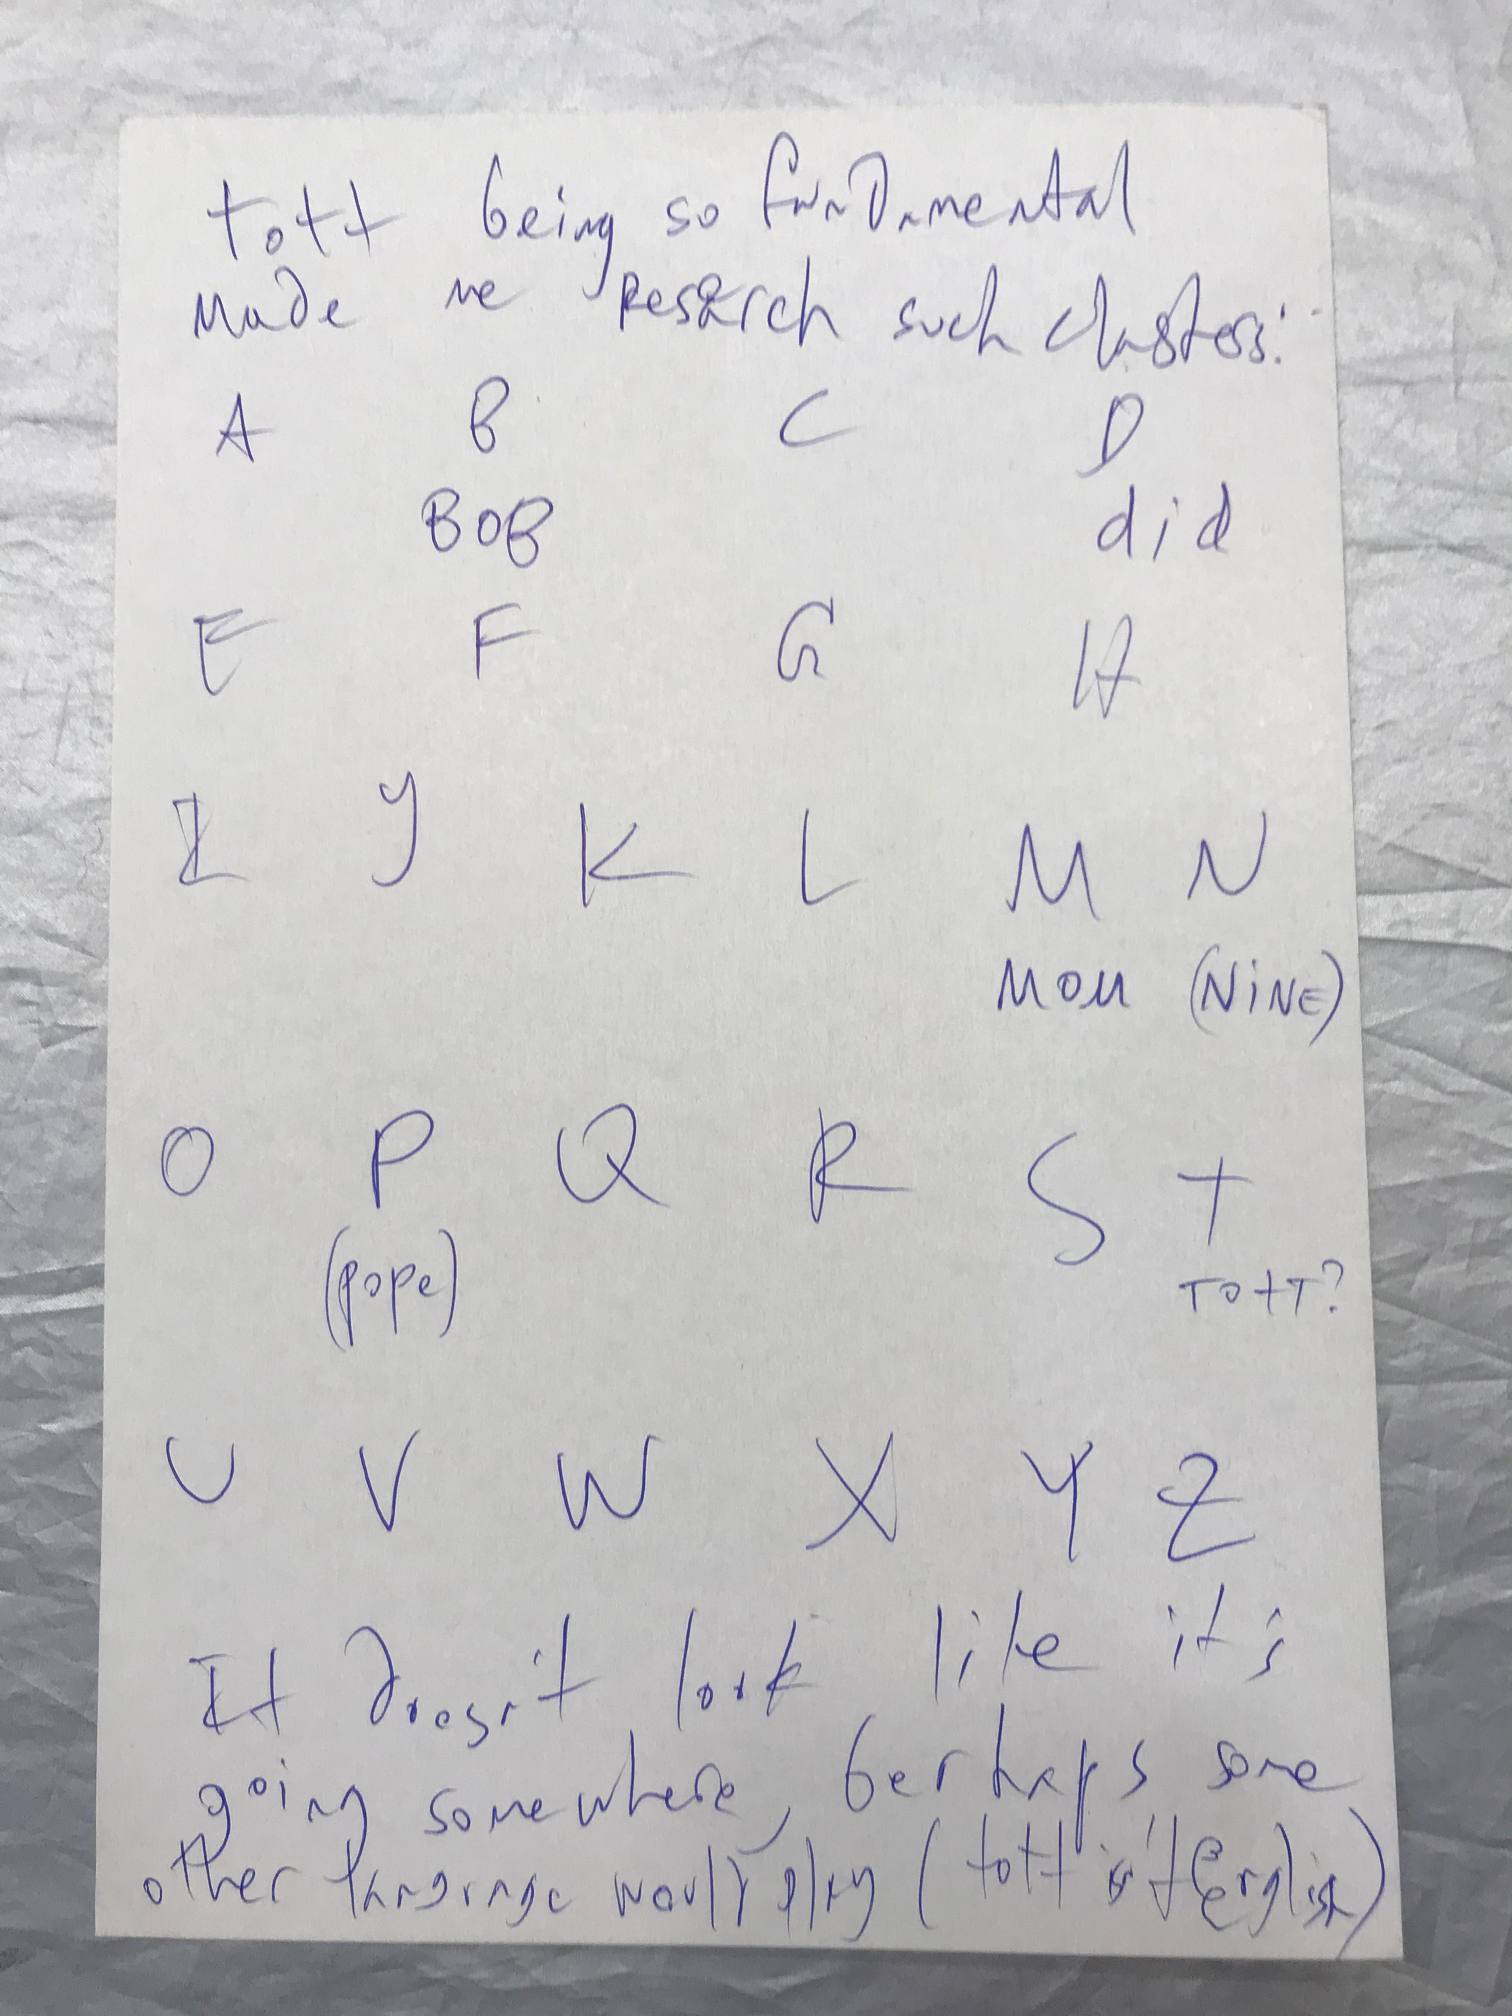 tott being so fundamental
made me research such clusters:
A B C D
BOB did
E F G H
I J K L M N
MOM (NINE)
O P Q R S T
(pope) TOTT?
U V W X Y Z
It doesn't look like it's
going somewhere, perhaps some
other language would play (tott isn't English)